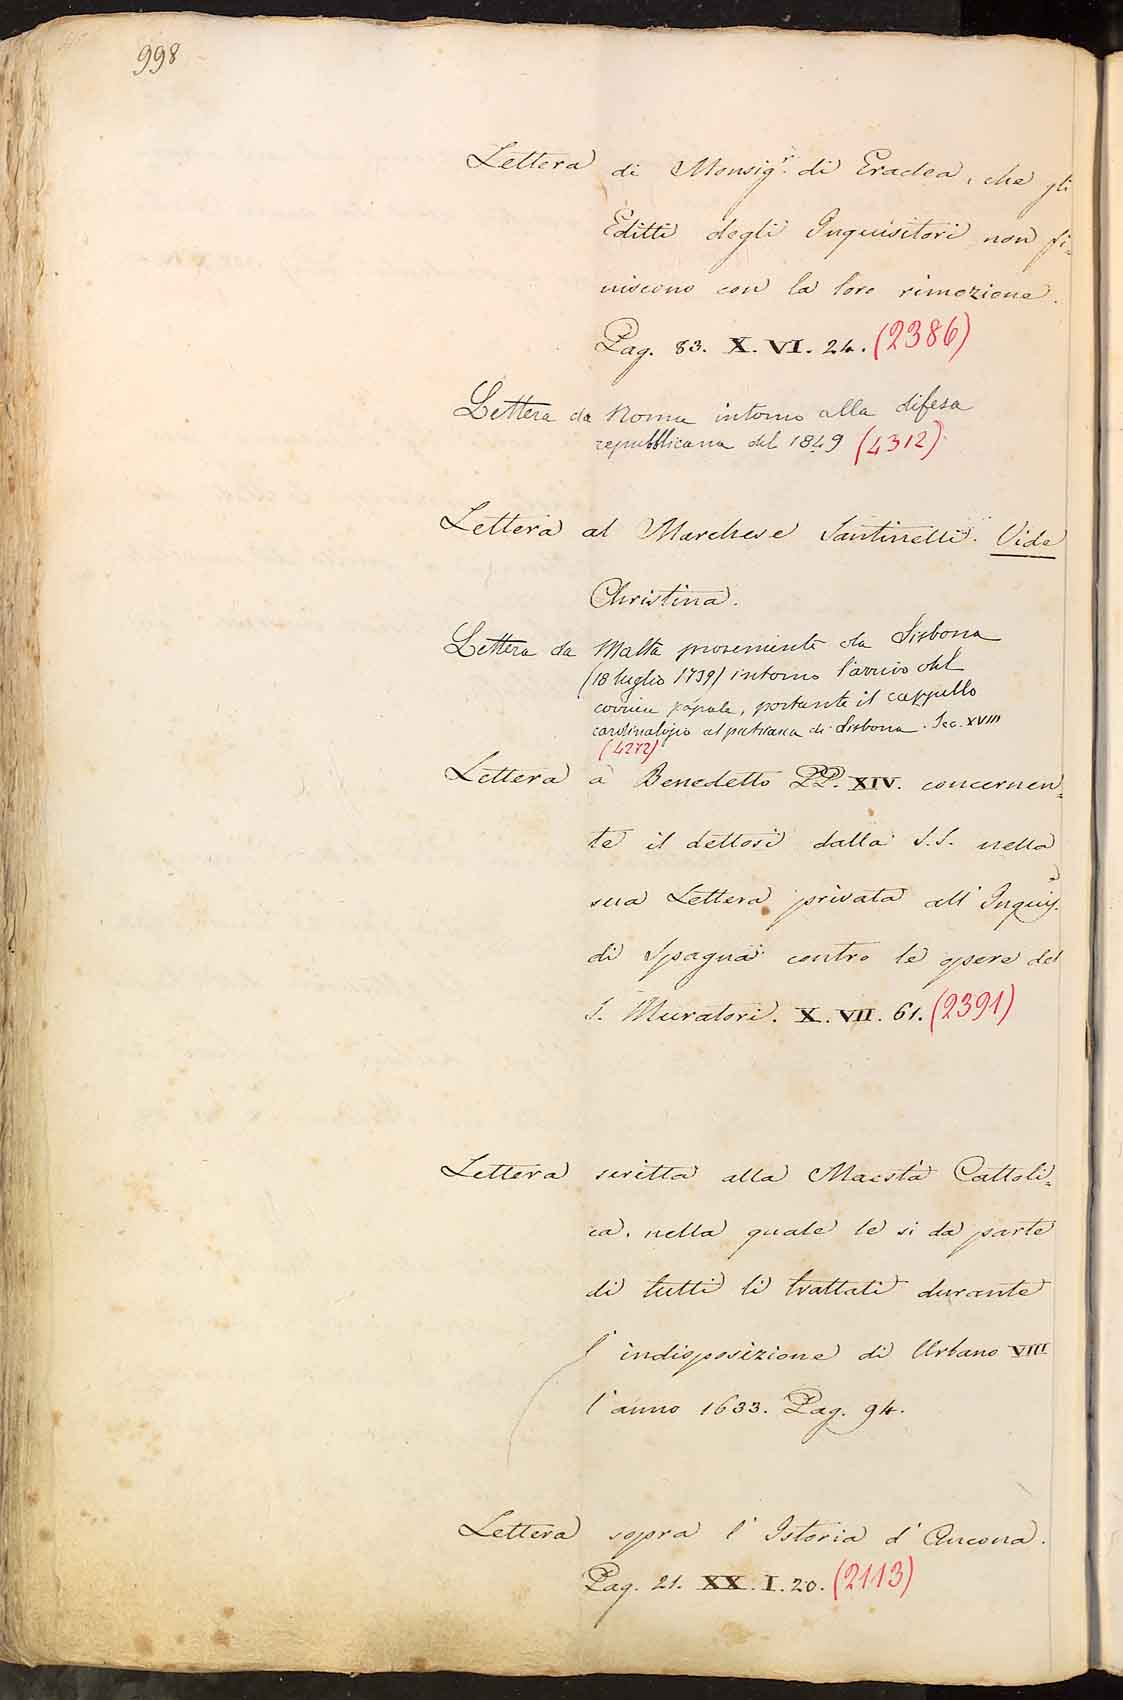 998
Lettera di Monsig.r di Eraclea, che gli
Editti degli Inquisitori non fi=
niscono con la loro rimozione.
Pag. 83. X. VI. 24. (2386)
Lettera da Roma intorno alla difesa
repubblicana del 1849 (4312)
Lettera al Marchese Santinelli. Vide
Christina.
Lettera da Malta proveniente da Lisbona
(18 luglio 1739) intorno l'arrivo del
corriere papale, portante il cappello
cardinalizio al patriarca di Lisbona. Sec. XVIII
(4272)
Lettera a Benedetto PP. XIV. concernen=
te il dettosi dalla S.S. nella
sua Lettera privata all' Inquis.e
di Spagna contro le opere del
S. Muratori. X. VII. 61. (2391)
Lettera scritta alla Maestà Cattoli=
ca, nella quale le si da parte
di tutti li trattati durante
l'indisposizione di Urbano VIII
l'anno 1633. Pag. 94.
Lettera sopra l'Istoria d'Ancona.
Pag. 21. XX. I. 20. (2113)